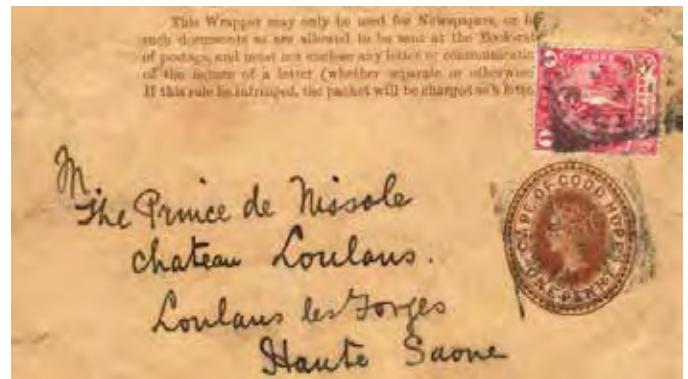 This Wrapper may only be used for Newspapers, or
such documents as are allowed to be sent at the Book-rate
of postage, and must not enclose any letter or communication
of the nature of a letter (whether separate or otherwise
If this rule be infringed, the packet will be charged as a letter.
M.
The Prince de Nissole
chateau Loulans.
Loulans les Forges
Haute Saone
CAPE OF GOOD HOPE
ONE PENNY